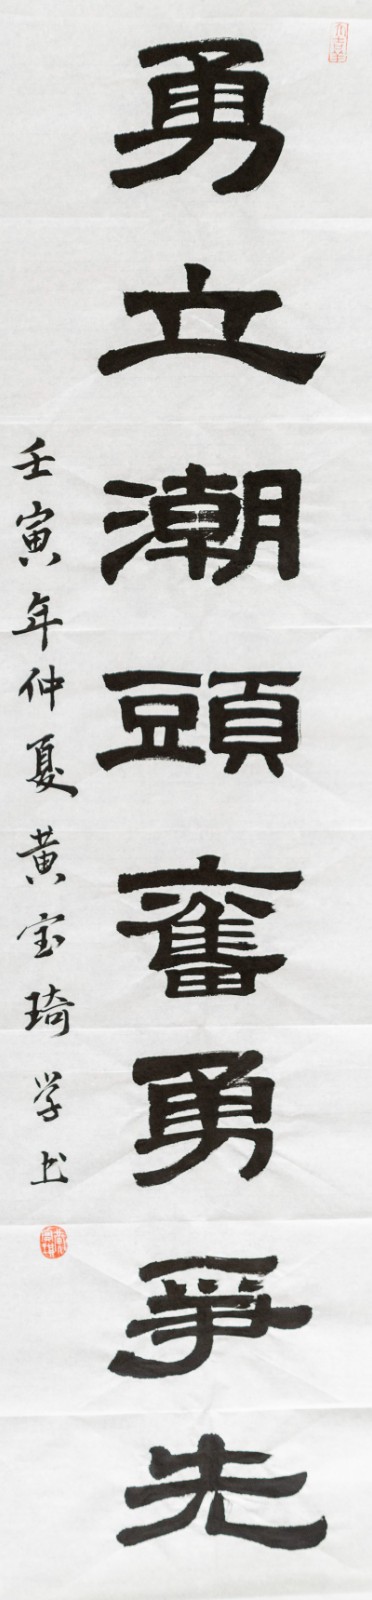 勇立潮頭奮勇爭先
壬寅年仲夏黄宝琦学书